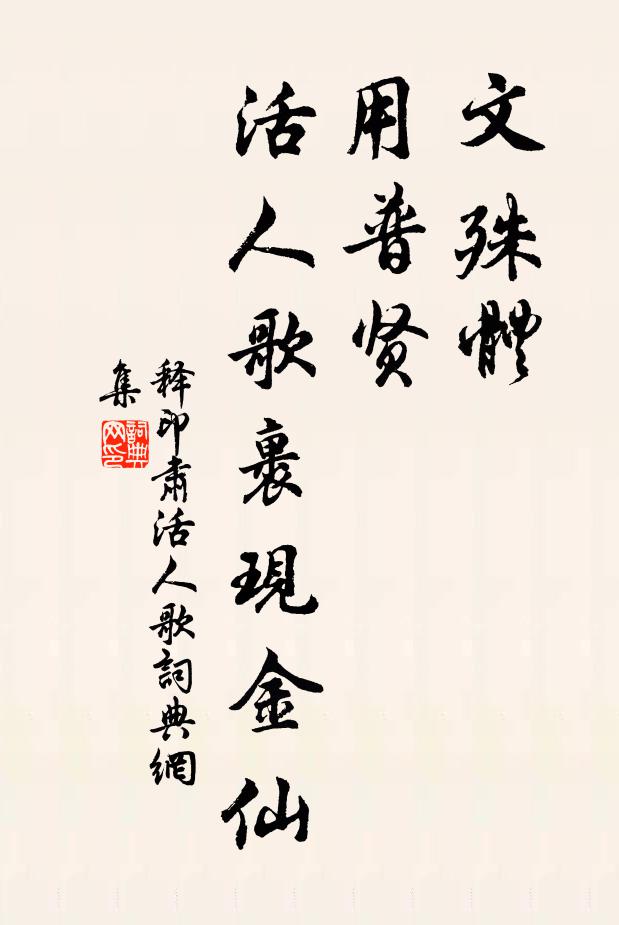 文殊體
用普贤
活人歌裹現金仙
释印肃活人歌詞典網
集
詞典网印